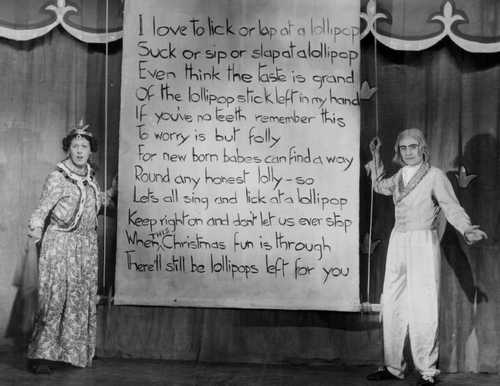 I love to lick or lap at a lollipop
Suck or sip or slap at a lollipop
Even think the taste is grand
Of the lollipop stick left in my hand
If you've no teeth remember this
To worry is but folly
For new born babes can find a way
Round any honest lolly - so
Let's all sing and lick at a lollipop
Keep right on and don't let us ever stop
When THIS Christmas fun is through
There'll still be lollipops left for you